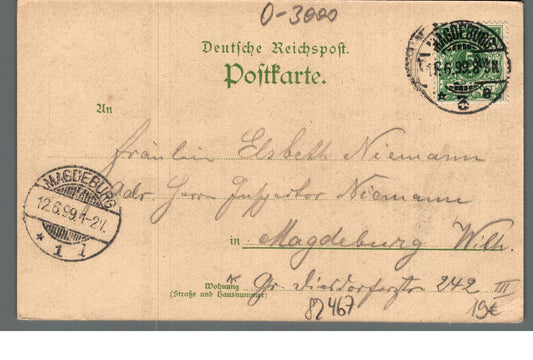 0-3000
Deutsche Reichspost.
Postkarte.
MAGDEBURG
12.6.99.8-9N.
* 3 e
An
Fräulein Elsbeth Niemann
Adr. Herrn Inspektor Niemann
MAGDEBURG
12.6.99.1-2V.
* 1 l
in Magdeburg Wilh.
Wohnung
(Straße und Hausnummer)
Gr. Diesdorferstr 242 III
82467
19€